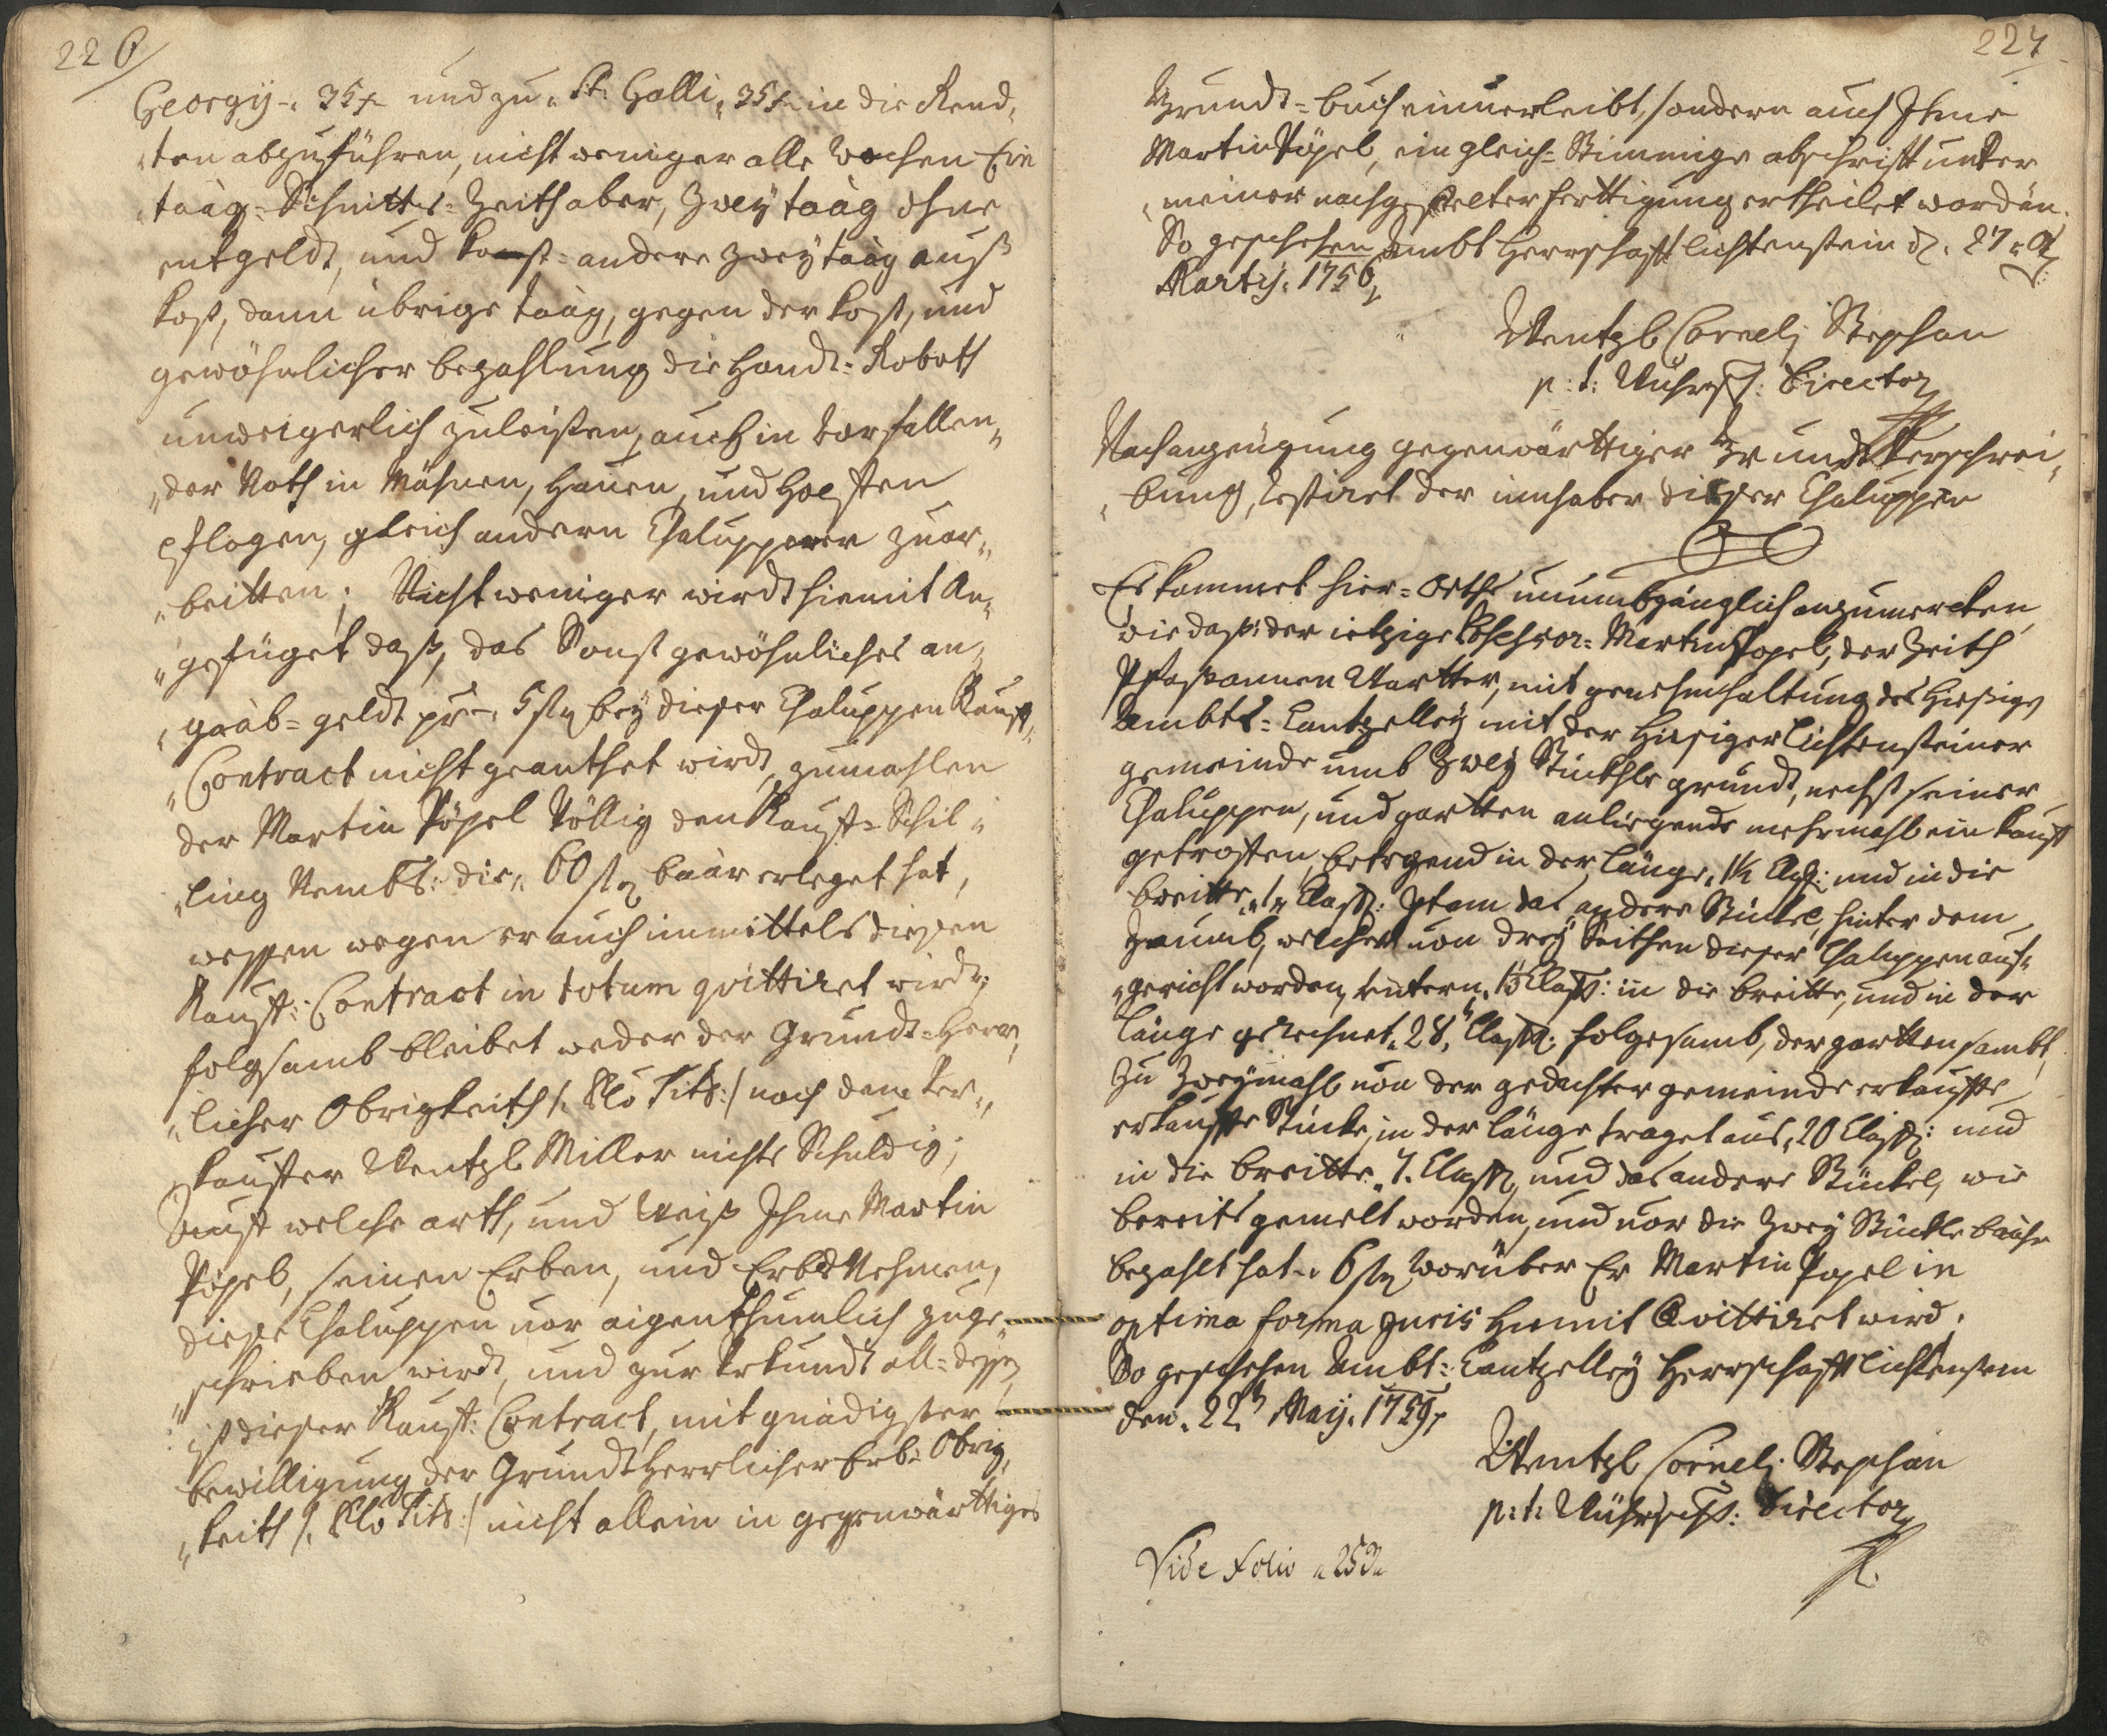 226
Georgÿ 35 x und zu St: Galli 35 x in die Rend„
„ten abzuführen, nicht weniger alle Wochen Ein
taäg Schnitts-Zeith aber, Zweÿ taäg ohne
entgeldt, und sonst andere zweÿ taäg auß
kost, dann übrige taäg, gegen der kost, und
gewöhnlicher bezahlung die Handt-Roboth
unweigerlich zuleisten, auch in vorfallen„
„der Noth in Mähen, Hauen, und
pflegen, gleich andern Chalupper zuar„
„beitten; Nicht weniger wirdt hiemit An„
„gefüget daß, das Sonst gewöhnliches an„
„gaab-geldt pr 5 ß beÿ dießer Chaluppen Kauff„
„Contract nicht wirdt, zumahlen
der Martin Töpel Völlig den Kauff-Schil„
„ling Nembl: die 60 ß baar erleget hat,
wessen wegen er auch inmittels diesen
Kauff: Contract in totum quittiret wirdt,
folgsamb bleibet weder der Grundt-Herr„
„licher Obrigkeith /: Tit: / noch dem Ver„
„kauffer Wentzl Miller nichts Schuldig;
Auff welche arth, und Weiß Ihme Martin
Töpel, seinen Erben, und Erbs Nehmern,
dieße Chaluppen nor aigenthumlich zuge„
„schrieben wirdt, und zur Urkundt all-dessen
ist dießer Kauff: Contract, mit gnädigster
bewilligung der Grundt Herrlicher Erb-Obrig„
„keith /: Tit: / nicht allein in gegenwärttiges
227
Grundt-buch einverleibt, sondern auch Ihme
Martin Töpel, ein gleich-Stimmige abschrifft unter
meiner nachgestelter ferttigung ertheilet wordän.
So geschehen Ambt Herrschafft Lichtenstein d. 27
Martij 1756
Wentzl Cornelj Stephan
p: t: Director
Nach anzeugung gegenwärttiger Grundt Verschrei„
„bung, der innhaber dießer Chaluppen
Es kommet hier-Orths unumbgänglich anzumercken,
wie daß: der ietzige Martin Töpel, der Zeith
Phasannen Wartter, mit genehmhaltung des Hießigen
Ambts-Cantzelleÿ mit der Hießiger Lichtensteiner
gemeinde umb Zweÿ Stückhle grundt, nechst seiner
Chaluppen, und gartten anliegende mehrmahl ein kauff
getroffen, betregend in der Länge, Claff: und in die
breitte 1 Claff: Item das andere Stückel, hinter dem
Zaun, welcher von dreÿ Seithen dießer Chaluppen auf„
„gericht worden, untern, 13 Claff: in die breitte, und in der
Länge gerechnet 28 Claff: folgesamb, der gartten sambt,
zu Zweÿmahl von der gedachter gemeinde erkauffte
erkauffte Stücke, in der Länge traget aus, 20 Claff: und
in die breitte 7. Claff, und das andere Stückel, wie
bereits gemelt worden, und vor die Zweÿ Stückle baahr
bezahlt hat 6 ß Worüber Er Martin Töpel in
optima forma Juris hiemit Quittiret wird.
So geschehen Ambt-Cantzelleÿ Herrschafft Lichtenstein
den 22 Maij 1759
Wentzl Cornelj Stephan
p: t: Director
Vide Folio 253